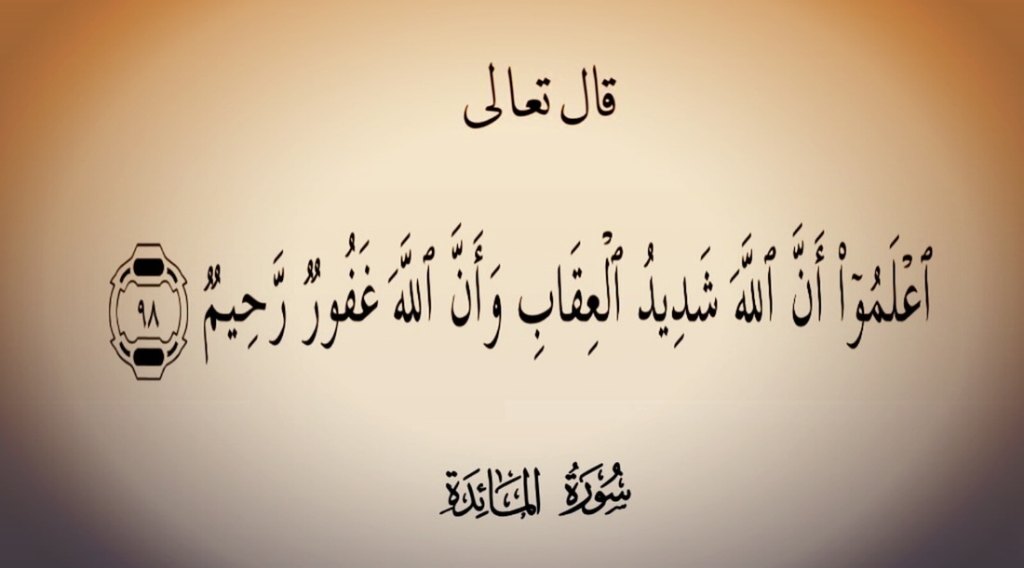 قال تعالى
ٱعۡلَمُوٓاْ أَنَّ ٱللَّهَ شَدِيدُ ٱلۡعِقَابِ وَأَنَّ ٱللَّهَ غَفُورٞ رَّحِيمٞ ٩٨
سُورَةُ المَائِدَةِ